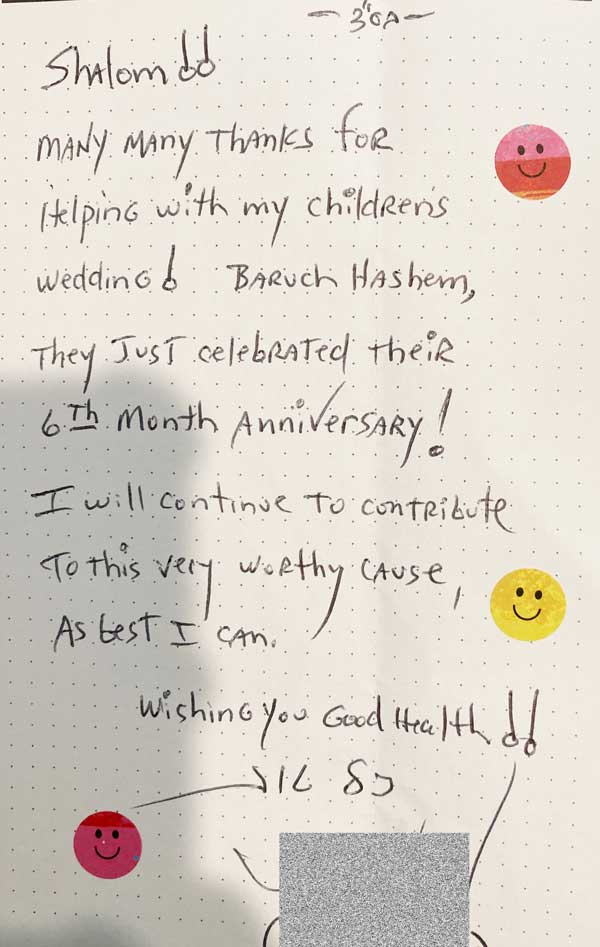 בס"ד
Shalom!!
MANY MANY THANKS FOR
Helping with my children's
wedding! BARUCH HASHEM,
They JUST celebrated their
6TH Month Anniversary!
I will continue to contribute
To this very worthy cause,
As best I can.
Wishing you Good Health!!
כל טוב